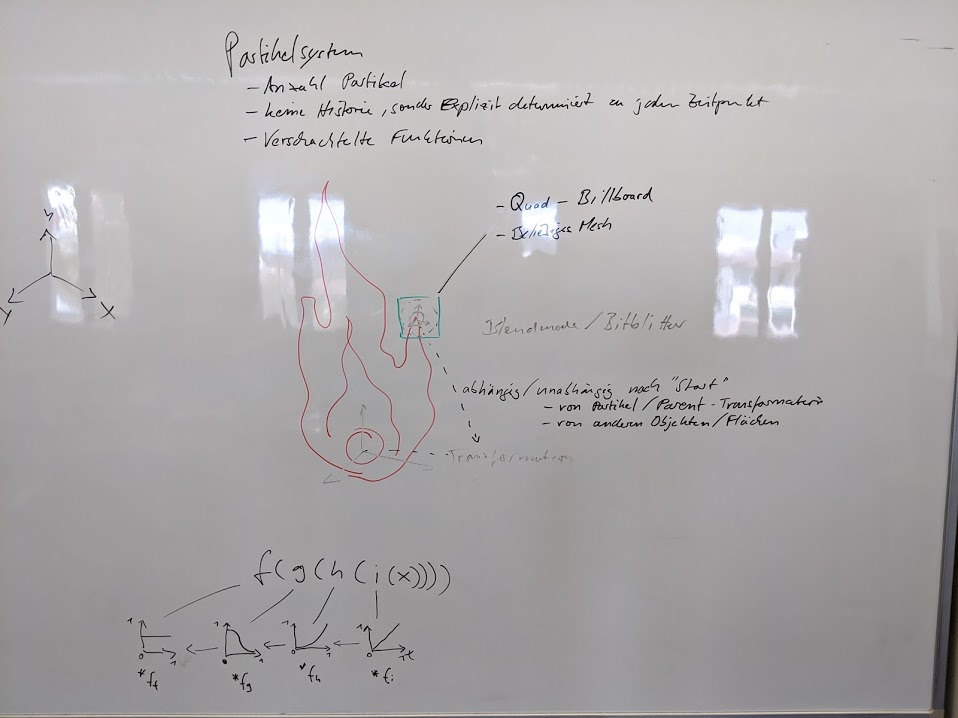 Partikelsystem
- Anzahl Partikel
- keine Historie, sonder Explizit determiniert zu jeden Zeitpunkt
- Verschachtelte Funktionen
- Quad - Billboard
- Beliebiges Mesh
Blendmode / Bitblitter
abhängig / unabhängig nach "Start"
- von Partikel / Parent - Transformation
- von anderen Objekten / Flächen
Transformation
Y
X
f(g(h(i(x))))
1 1 1 1
0 1 0 1 0 1 0 1 x
*ff *fg *fh *fi